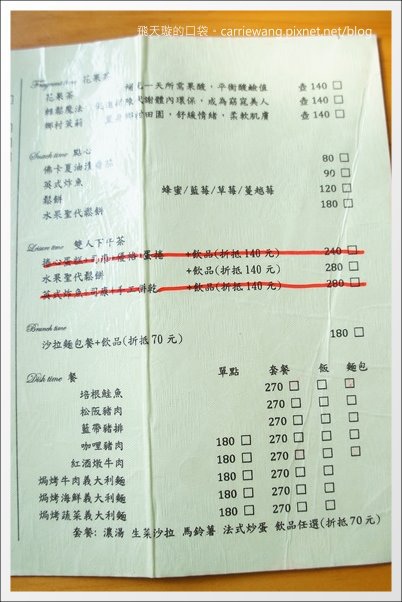 飛天璇的口袋 - carriewang.pixnet.net/blog
Fragrant time 花果茶
花果茶 補充一天所需果酸，平衡酸鹼值 壺140 □
輕鬆魔法 代謝體內環保，成為窈窕美人 壺140 □
鄉村茉莉 田園，舒緩情緒，柔軟肌膚 壺140 □
Snack time 點心
佛卡夏油漬番茄 80 □
英式炸魚 90 □
鬆餅 蜂蜜/藍莓/草莓/蔓越莓 120 □
水果聖代鬆餅 180 □
Leisure time 雙人下午茶
+優格+蛋捲 +飲品(折抵140元) 240 □
水果聖代鬆餅 +飲品(折抵140元) 280 □
英式炸魚+司康+手工餅乾 +飲品(折抵140元) 280 □
Brunch time
沙拉麵包餐+飲品(折抵70元) 180 □
Dish time 餐 單點 套餐 飯 麵包
培根鮭魚 270 □ □ □
松阪豬肉 270 □ □ □
藍帶豬排 270 □ □ □
咖哩豬肉 180 □ 270 □ □ □
紅酒燉牛肉 180 □ 270 □ □ □
焗烤牛肉義大利麵 180 □ 270 □ □ □
焗烤海鮮義大利麵 180 □ 270 □ □ □
焗烤蔬菜義大利麵 180 □ 270 □ □ □
套餐: 濃湯 生菜沙拉 馬鈴薯 法式炒蛋 飲品任選(折抵70元)